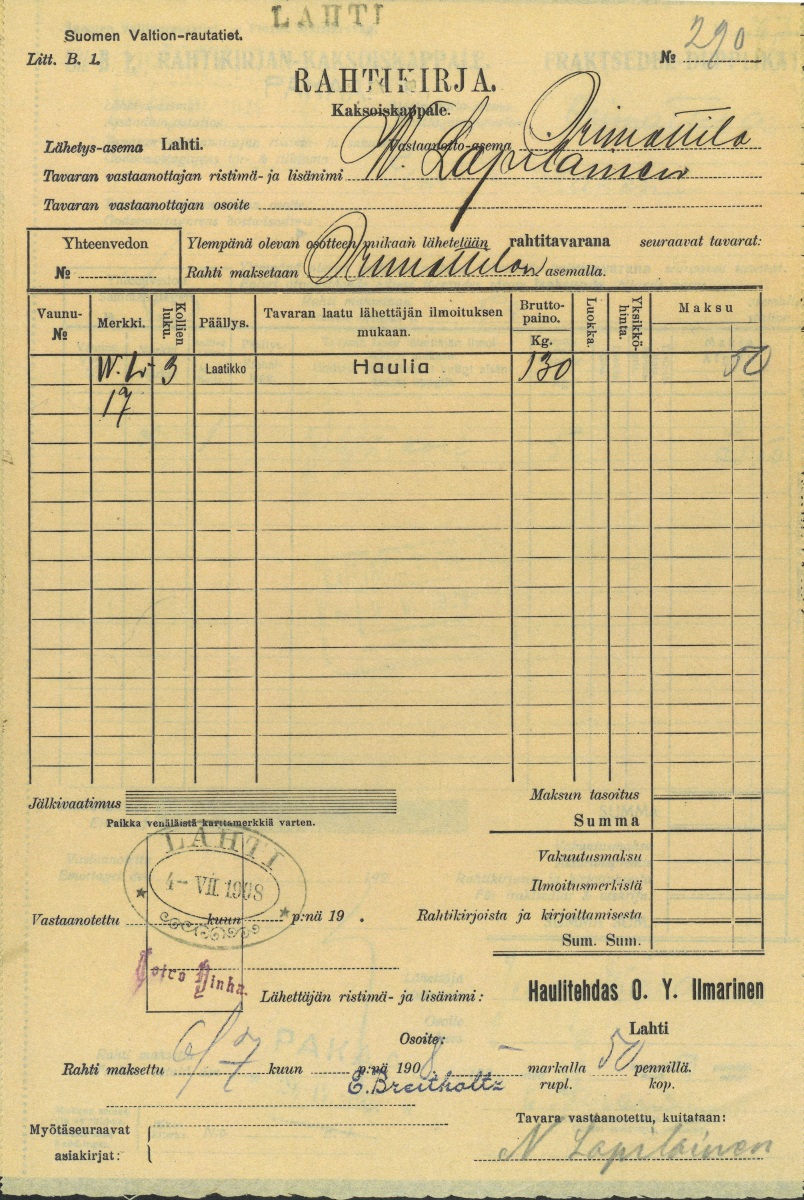 LAHTI
Suomen Valtion-rautatiet.
Litt. B. 1.
№ 290
RAHTIKIRJA.
Kaksoiskappale.
Lähetys-asema Lahti. Vastaanotto-asema Orimattila
Tavaran vastaanottajan ristimä- ja lisänimi W. Lapilainen
Tavaran vastaanottajan osoite
Yhteenvedon
№
Ylempänä olevan osotteen mukaan lähetetään rahtitavarana seuraavat tavarat:
Rahti maksetaan Orimattilan asemalla.
Vaunu-№ Merkki. Kollien luku. Päällys. Tavaran laatu lähettäjän ilmoituksen mukaan. Brutto-paino. Kg. Luokka. Yksikkö-hinta. Maksu
W. L. 3 Laatikko Haulia 130 50
17
Jälkivaatimus
Paikka venäläistä karttamerkkiä varten.
Maksun tasoitus
Summa
Vakuutusmaksu
Ilmoitusmerkistä
Rahtikirjoista ja kirjoittamisesta
Sum. Sum.
LAHTI
4- VII. 1908
Vastaanotettu kuun p:nä 19 .
Lähettäjän ristimä- ja lisänimi: Haulitehdas O. Y. Ilmarinen
Osoite: Lahti
Rahti maksettu 6/7 kuun p:nä 1908 – markalla 50 pennillä.
E. Breitholtz rupl. kop.
Myötäseuraavat
asiakirjat:
Tavara vastaanotettu, kuitataan:
N Lapilainen